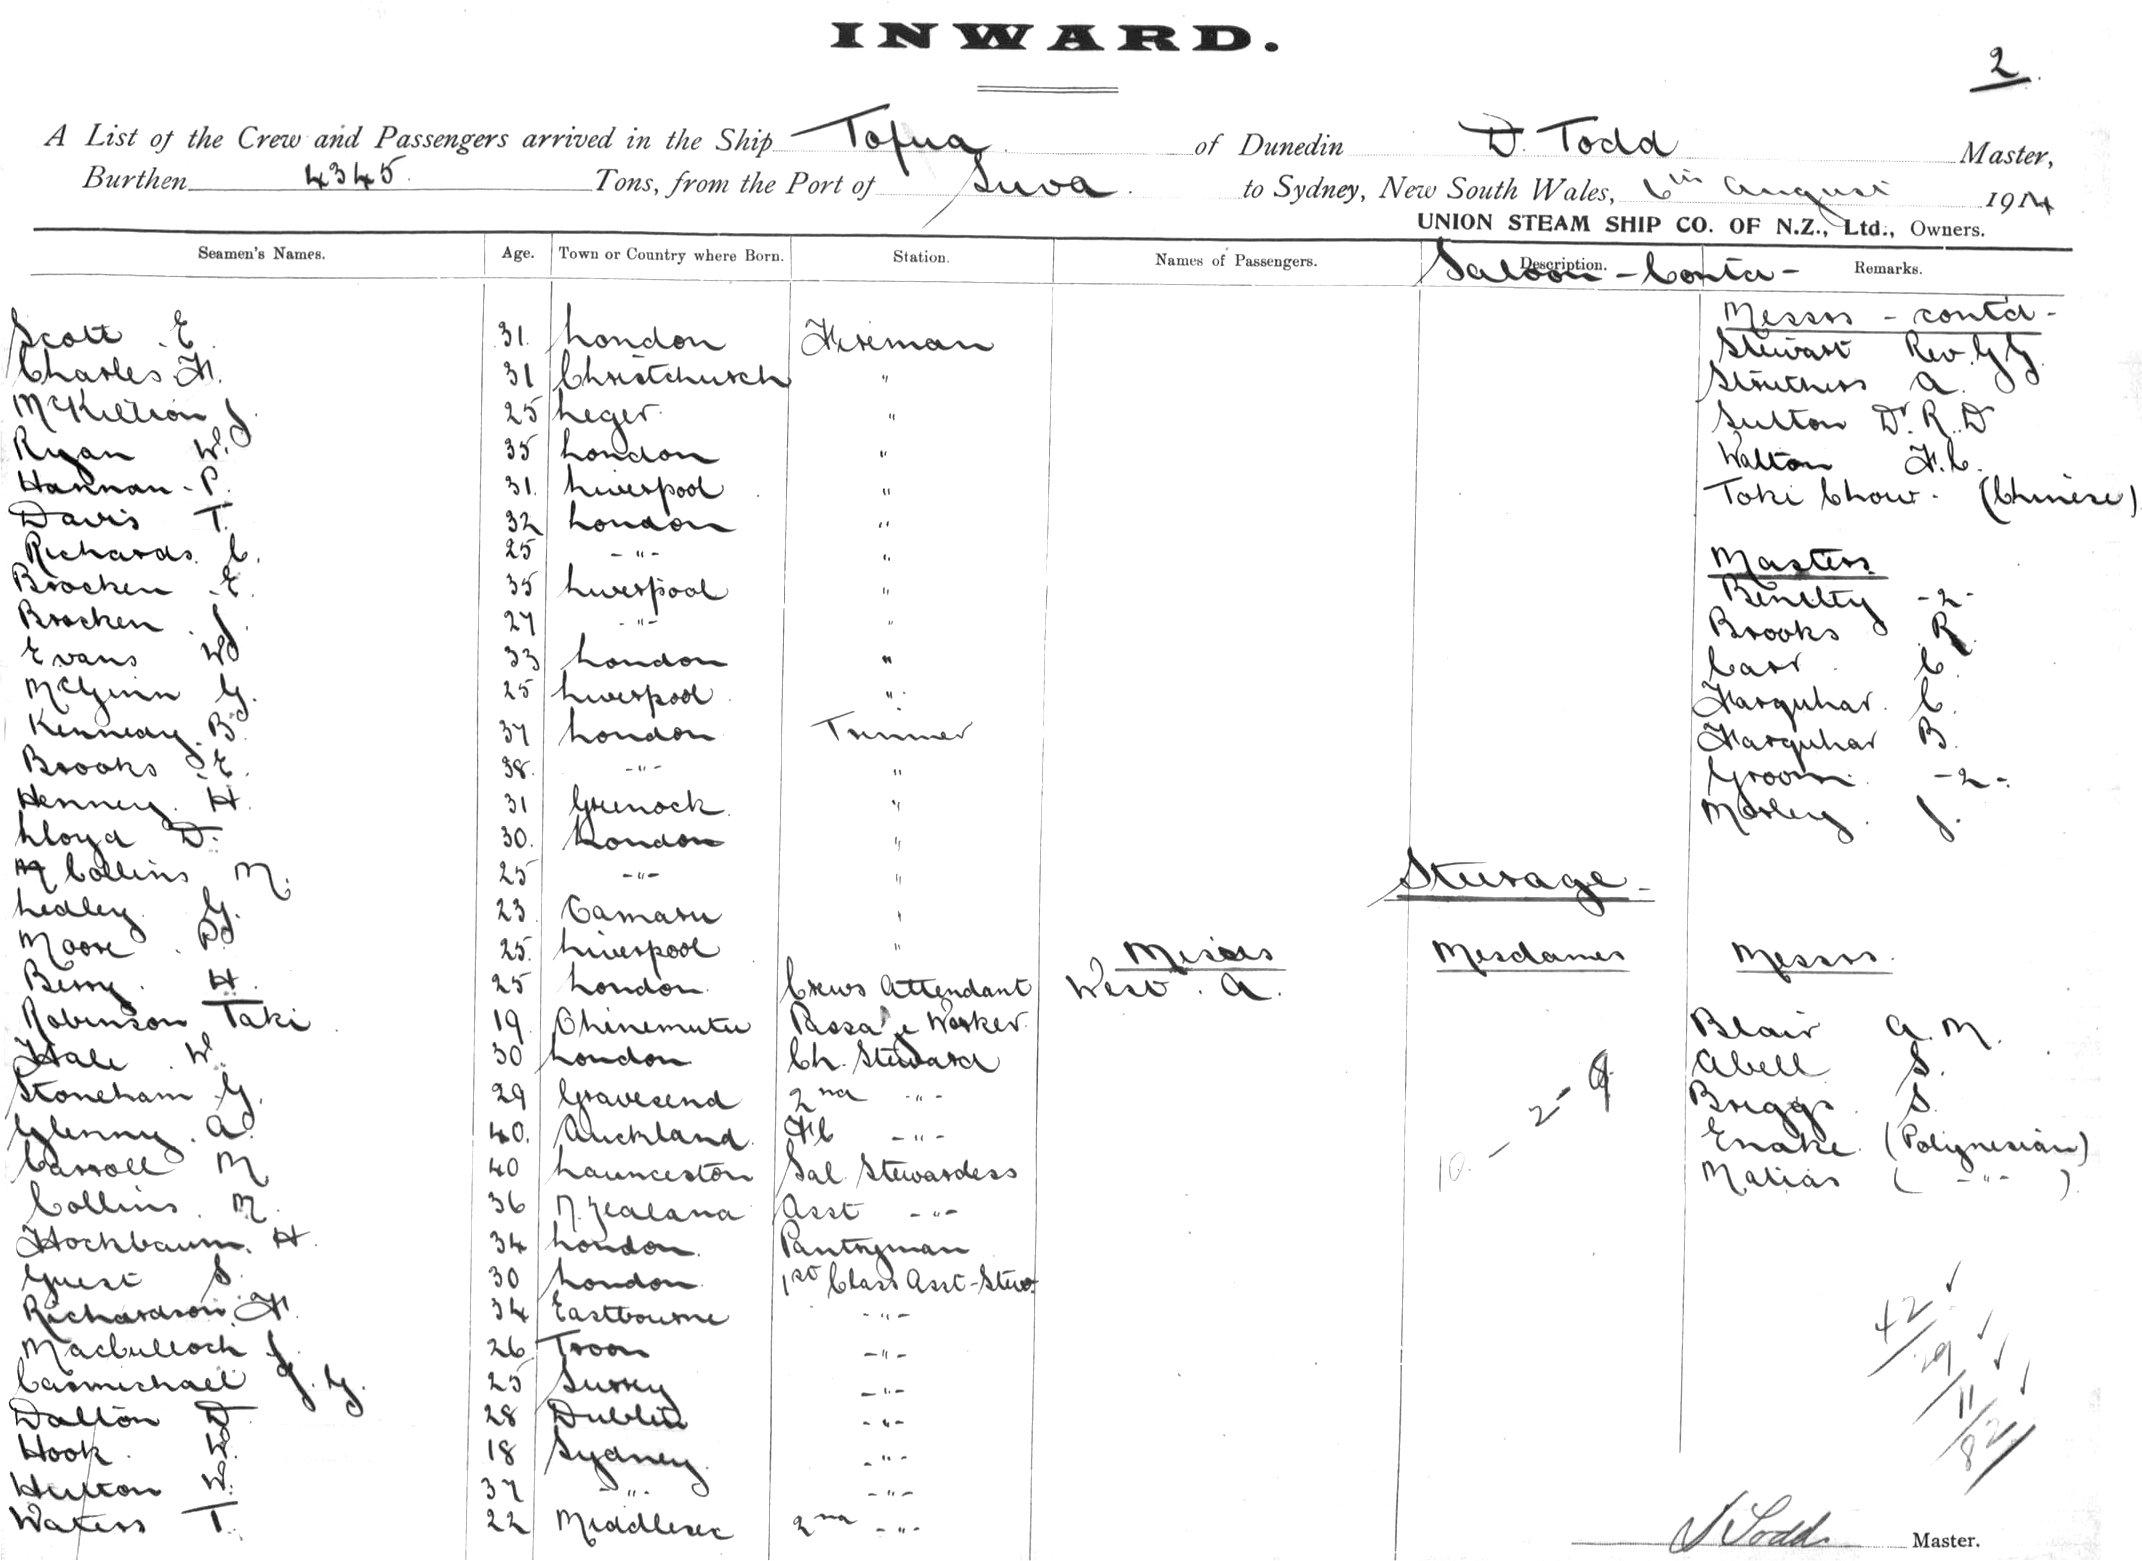 INWARD.
2
A List of the Crew and Passengers arrived in the Ship Tofua of Dunedin D. Todd Master,
Burthen 4345 Tons, from the Port of Suva to Sydney, New South Wales, 6th August 1914
UNION STEAM SHIP CO. OF N.Z., Ltd., Owners.
Seamen's Names. Age. Town or Country where Born. Station. Names of Passengers. Description. Remarks.
Saloon - Contd -
Messrs - contd -
Scott E. 31. London Fireman Stewart Rev. G G.
Charles F. 31 Christchurch " Struthers A.
McKillion J. 25 Leger " Sutton Dr. R. D
Ryan W. 35 London " Walton F. C.
Hannan P. 31. Liverpool " Toki Chow. (Chinese)
Davis T. 32 London "
Richards C. 25 - " - " Masters
Bracken E. 35 Liverpool " Bentley - 2 -
Bracken J. 27 - " - " Brooks R
Evans W 33 London " Carr C.
McGinn G. 25 Liverpool " Farquhar C.
Kennedy B. 37 London Trimmer Farquhar B.
Brooks E. 38. - " - " Groom - 2 -
Henney H. 31 Greenock " Morley J.
Lloyd D. 30. London "
M Collins M. 25 - " - " Steerage -
Ledley G. 23 Oamaru "
Moore P. 25. Liverpool " Misses Mesdames Messrs.
Berry H. 25 London. Crews Attendant West. A.
Robinson Taki 19 Ohinemutu Passage Worker. Blair A. M.
Hale W. 30 London Ch. Steward Abell S.
Stoneham G. 29 Gravesend 2nd - " - Briggs S.
Glenny A. 40. Auckland FC - " - Enoke (Polynesian)
Carroll M 40 Launceston Sal. Stewardess 10 - 2 - 9 Matias ( - " - )
Collins M. 36 N. Zealand Asst - " -
Hockbaum H. 34 London. Pantryman
Guest S. 30 London 1st Class Asst-Stew.
Richardson F. 34 Eastbourne - " -
MacCulloch J. 26 Troon - " - 42
Carmichael J. G. 25 Surrey - " - 29
Dalton D 28 Dublin - " - 11
Hook W. 18 Sydney. - " - 82
Hutton W. 37 - " - - " -
Waters T. 22 Middlesex 2nd - " -
J Todd Master.